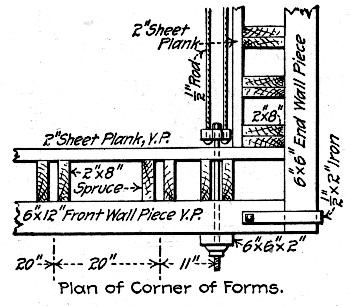 2"Sheet
Plank
1/2" Rod
2"x8"
6"x6" End Wall Piece
1/2"x2" Iron
2"Sheet Plank, Y.P.
2"x8"
Spruce
6"x12" Front Wall Piece Y.P.
6"x6"x2"
20" 20" 11"
Plan of Corner of Forms.